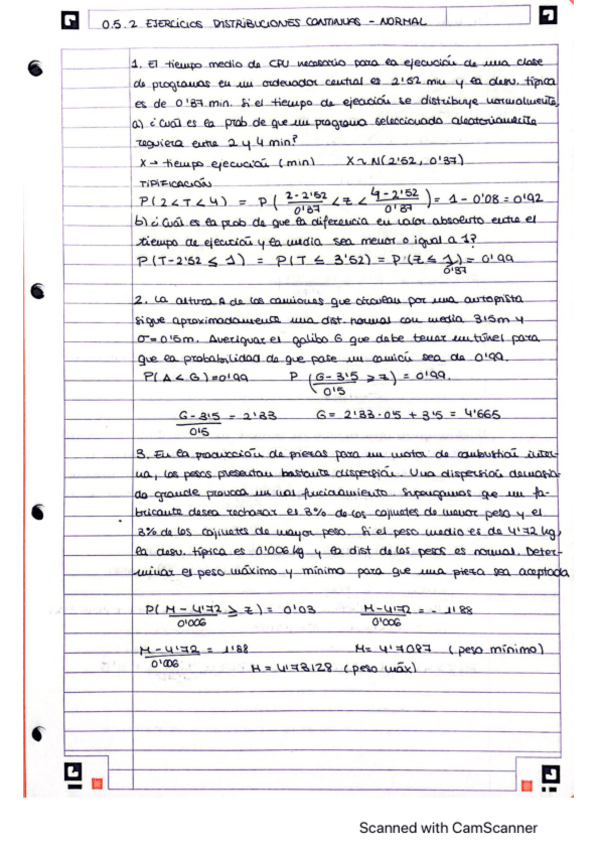 0.5.2 EJERCICIOS DISTRIBUCIONES CONTINUAS - NORMAL
1. El tiempo medio de CPU necesario para la ejecución de una clase
de programas en un ordenador central es 2'52 min y la desv. típica
es de 0'87 min. Si el tiempo de ejecución se distribuye normalmente,
a) ¿Cuál es la prob de que un programa seleccionado aleatoriamente
requiera entre 2 y 4 min?
X → tiempo ejecución (min) X ~ N(2'52, 0'87)
TIPIFICACIÓN
P(2<T<4) = P(2-2'52/0'87 < Z < 4-2'52/0'87) = 1 - 0'08 = 0'92
b) ¿Cuál es la prob de que la diferencia en valor absoluto entre el
tiempo de ejecución y la media sea menor o igual a 1?
P(T-2'52 ≤ 1) = P(T ≤ 3'52) = P(Z ≤ 1/0'87) = 0'99
2. La altura A de los camiones que circulan por una autopista
sigue aproximadamente una dist. normal con media 3'5m y
σ = 0'5m. Averiguar el galibo G que debe tener un túnel para
que la probabilidad de que pase un camión sea de 0'99.
P(A < G) = 0'99 P(G-3'5/0'5 ≥ z) = 0'99.
G-3'5/0'5 = 2'33 G = 2'33·05 + 3'5 = 4'665
3. En la producción de piezas para un motor de combustión inter-
na, los pesos presentan bastante dispersión. Una dispersión demasia-
do grande provoca un mal funcionamiento. Supongamos que un fa-
bricante desea rechazar el 3% de los cojinetes de menor peso y el
3% de los cojinetes de mayor peso. Si el peso medio es de 4'72 kg,
la desv. típica es 0'006 kg y la dist de los pesos es normal. Deter-
minar el peso máximo y mínimo para que una pieza sea aceptada
P(M-4'72/0'006 ≥ z) = 0'03 M-4'72/0'006 = -1'88
M-4'72/0'006 = 1'88 M = 4'7087 (peso mínimo)
M = 4'73128 (peso máx)
Scanned with CamScanner